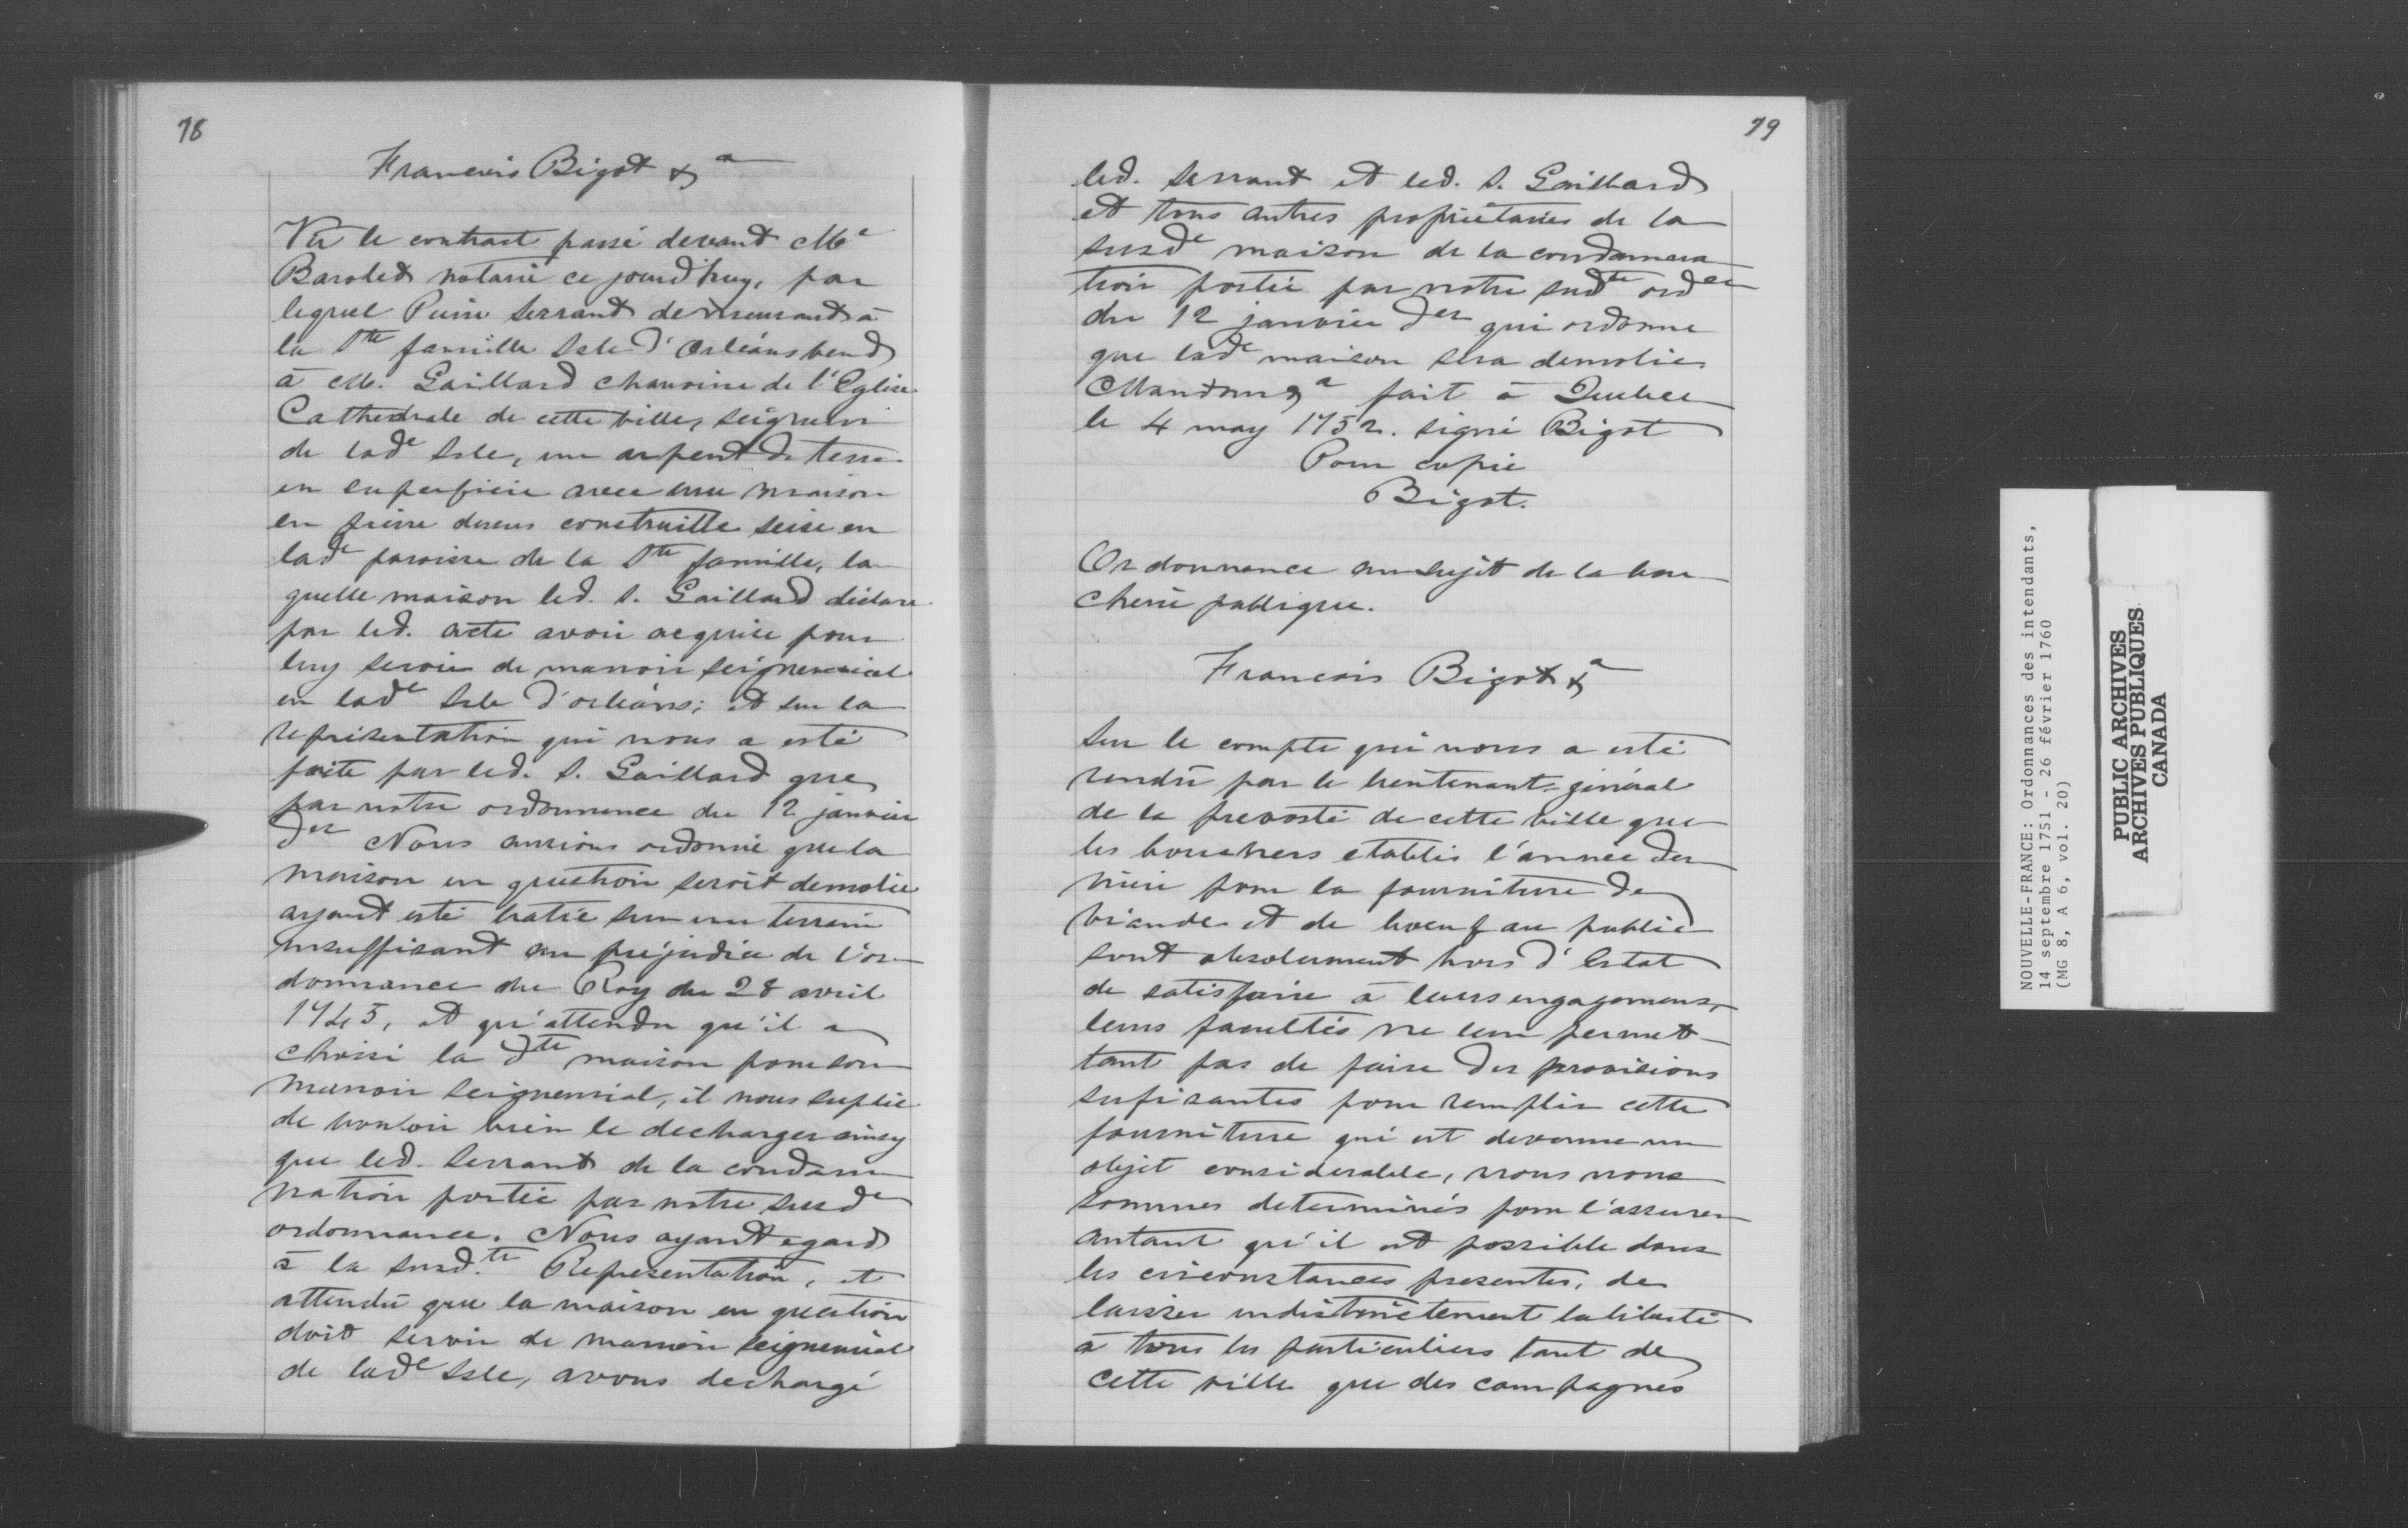 78
Francois Bigot &a
Vû le contract passé devant Me
Barolet notaire ce jourd'huy, par
lequel Pierre Serrand demeurant à
la Ste famille Isle d'Orléans vend
à M. Gaillard chanoine de l'Eglise
Cathedrale de cette ville, seigneur
de lade Isle, un arpent de terre
en superficie avec une maison
en pierre dessus construitte seise en
lade paroisse de la Ste famille, la
quelle maison led. S. Gaillard déclare
par led. acte avoir acquise pour
luy servir de manoir seigneurial
en lade Isle d'orléans; et sur la
représentation qui nous a esté
faite par led. S. Gaillard que
par notre ordonnance du 12 janvier
der Nous aurions ordonné que la
maison en question seroit demolie
ayant esté batie sur un terrain
insuffisant au préjudice de l'or-
donnance du Roy du 28 avril
1745, et qu'attendu qu'il a
choisi la dte maison pour son
manoir seigneurial, il nous suplie
de vouloir bien le decharger ainsy
que led. Serrant de la condam
nation portée par notre susde
ordonnance. Nous ayant egard
à la susd.te Representation, et
attendu que la maison en question
doit servir de manoir seigneurial
de lade Isle, avons dechargé
79
led. Serrant et led. S. Gaillard
et tous autres propriétaires de la
susde maison de la condamna
tion portée par notre sudte ordce
du 12 janvier der qui ordonne
que lade maison sera demolie
Mandons &a fait à Quebec
le 4 may 1752. signé Bigot
Pour copie
Bigot.
Ordonnance au sujet de la bou-
cherie publique.
Francois Bigot &a
Sur le compte qui nous a esté
rendu par le lieutenant-général
de la prevosté de cette ville que
les bouchers etablis l'année der
nière pour la fourniture de
viande et de boeuf au public
sont absolument hors d'Estat
de satisfaire à leurs engagemens,
leurs facultés ne leur permet-
tant pas de faire des provisions
sufisantes pour remplir cette
fourniture qui est devenue un
objet considerable, nous nous
sommes determinés pour l'assurer
autant qu'il est possible dans
les circonstances presentes, de
laisser indistinctement la liberté
à tous les particuliers tant de
cette ville que des campagnes
NOUVELLE-FRANCE: Ordonnances des intendants,
14 septembre 1751 - 26 février 1760
(MG 8, A 6, vol. 20)
PUBLIC ARCHIVES
ARCHIVES PUBLIQUES
CANADA